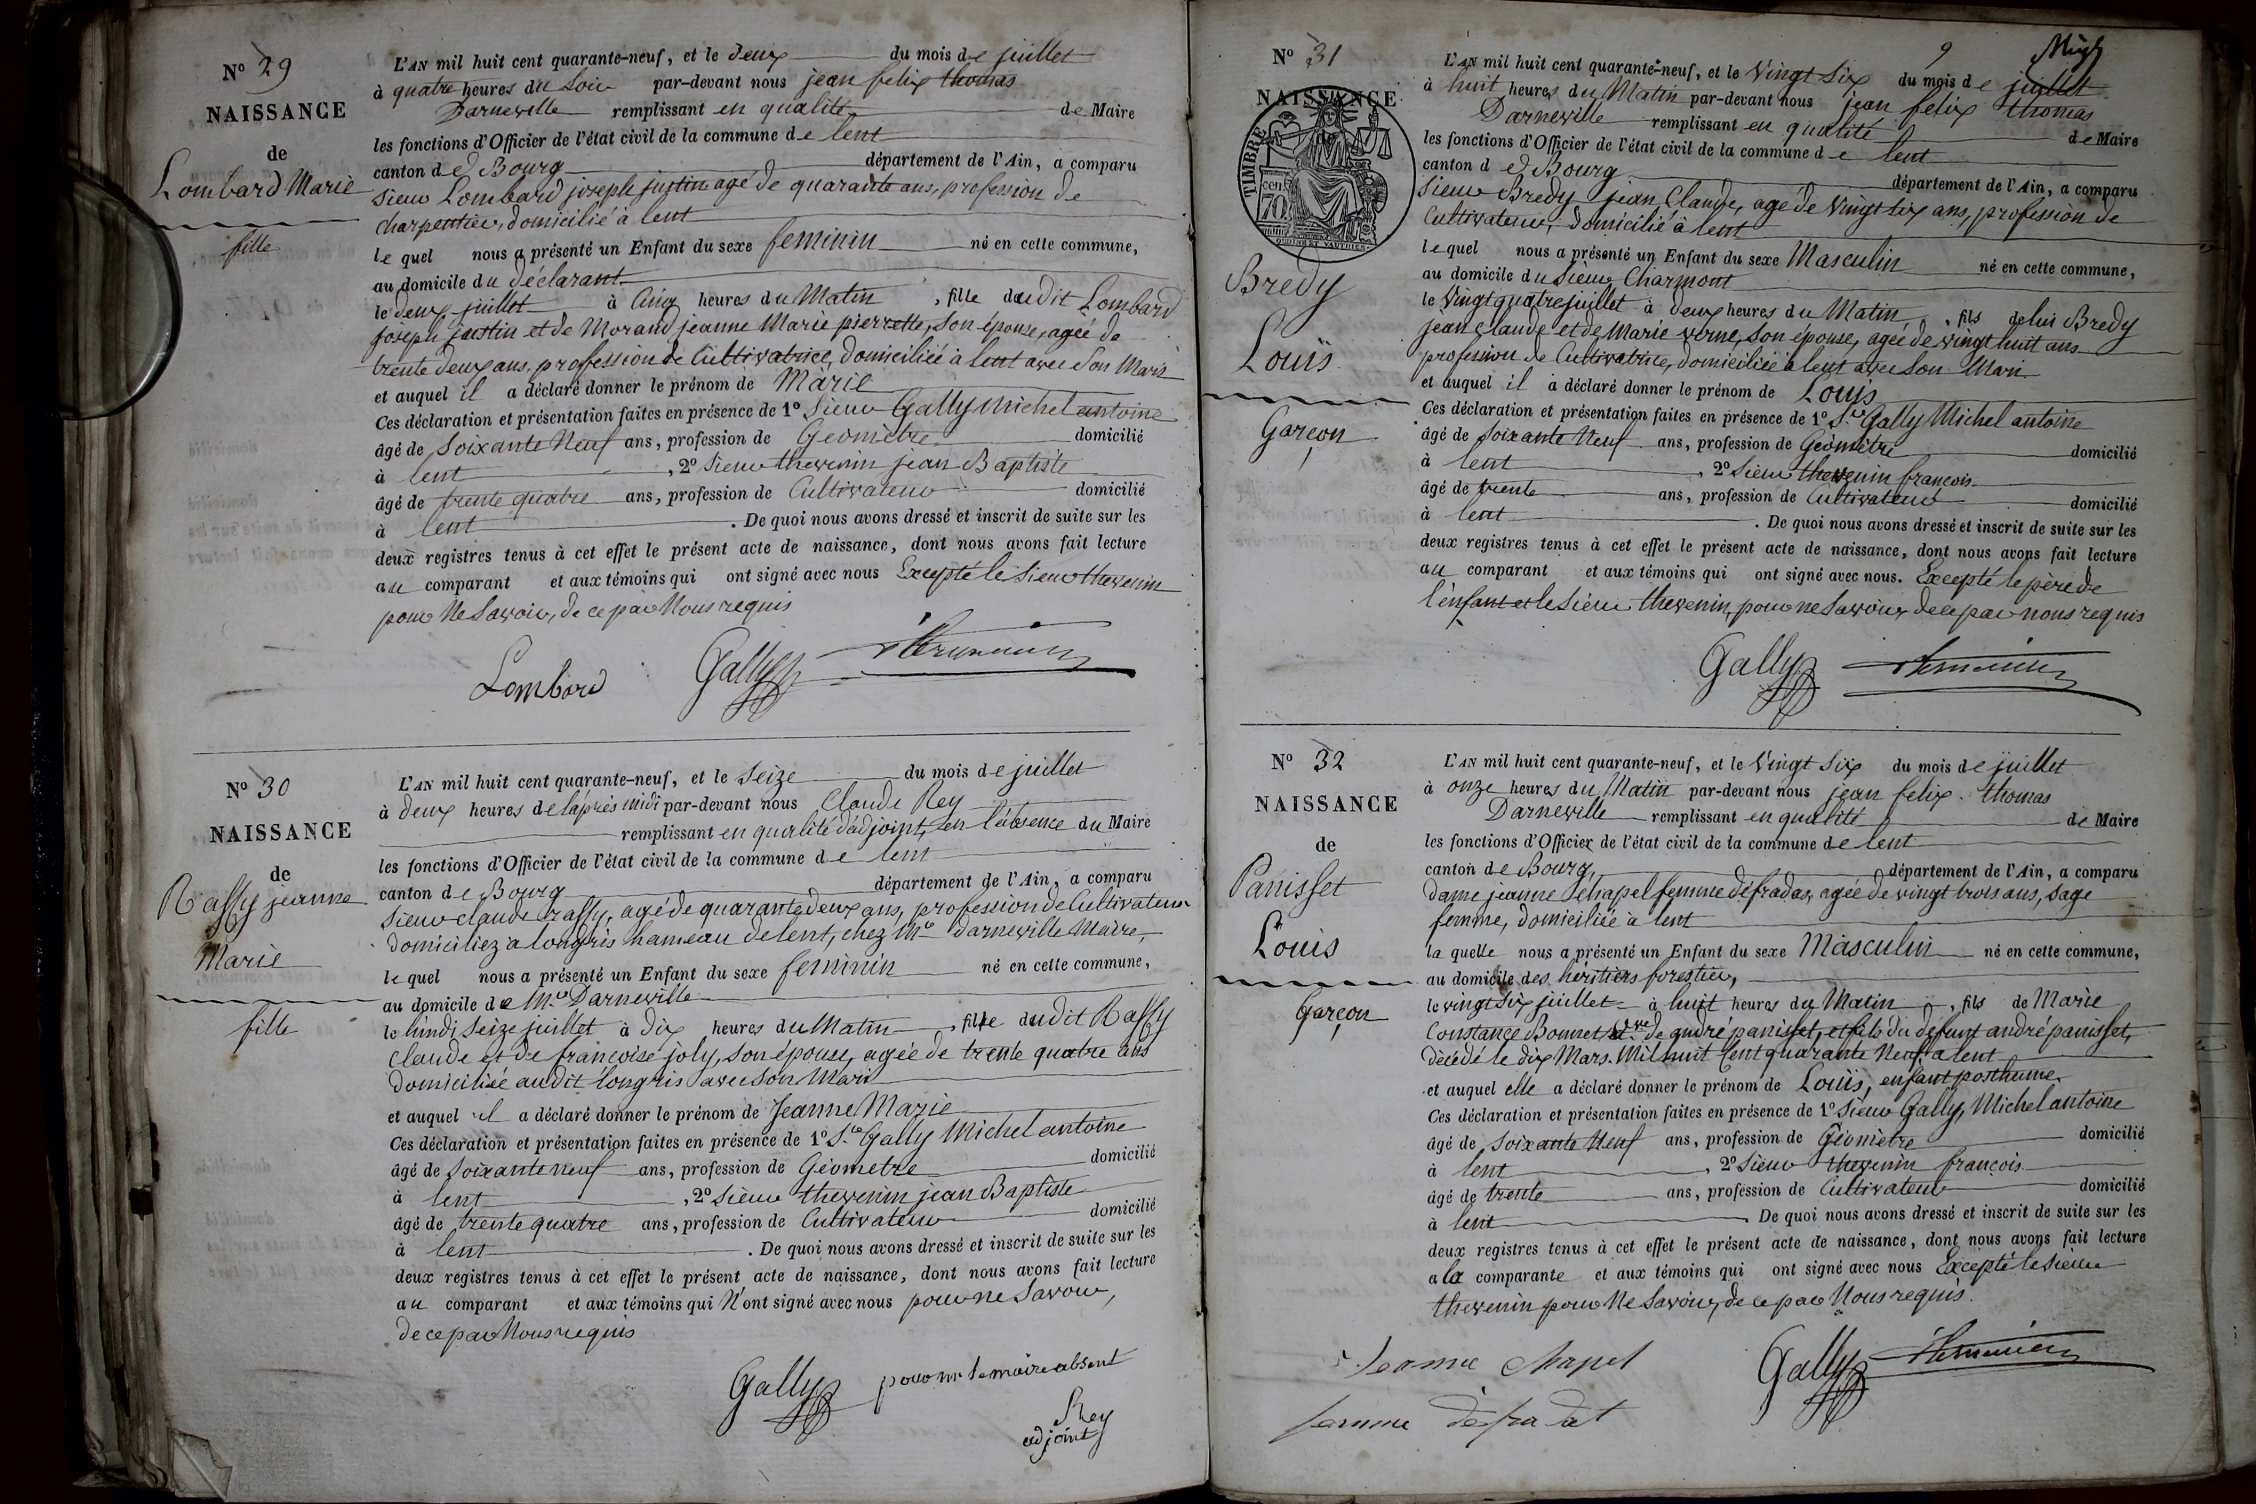 N.º 29
NAISSANCE
de
Lombard Marie
fille
L'AN mil huit cent quarante-neuf, et le deux du mois de juillet
à quatre heures du soir par-devant nous jean felix thomas
Darneville remplissant en qualité de Maire
les fonctions d'Officier de l'état civil de la commune de lent
canton de Bourg département de l'Ain, a comparu
sieur Lombard joseph justin agé de quarante ans, profession de
charpentier, domicilié à lent
lequel nous a présenté un Enfant du sexe feminin né en cette commune,
au domicile du déclarant
le deux juillet à cinq heures du Matin, fille dudit Lombard
joseph justin et de Morand jeanne Marie pierrette, son épouse, agée de
trente deux ans, profession de Cultivatrice, domiciliée à lent avec son Mari
et auquel il a déclaré donner le prénom de Marie
Ces déclaration et présentation faites en présence de 1º Sieur Gally Michel antoine
âgé de soixante Neuf ans, profession de Géomètre domicilié
à lent, 2º Sieur thevenin jean Baptiste
âgé de trente quatre ans, profession de Cultivateur domicilié
à lent. De quoi nous avons dressé et inscrit de suite sur les
deux registres tenus à cet effet le présent acte de naissance, dont nous avons fait lecture
au comparant et aux témoins qui ont signé avec nous Excepté le sieur thevenin
pour Ne Savoir, de ce par Nous requis
Lombard Gally
Nº 30
NAISSANCE
de
Raffy jeanne
Marie
fille
L'AN mil huit cent quarante-neuf, et le Seize du mois de juillet
à deux heures de l'après midi par-devant nous Claude Rey
remplissant en qualité d'adjoint, en l'absence du Maire
les fonctions d'Officier de l'état civil de la commune de lent
canton de Bourg département de l'Ain, a comparu
Sieur claude raffy, agé de quarante deux ans, profession de Cultivateur
domiciliez a longris hameau de lent, chez Mr Darneville Maire,
lequel nous a présenté un Enfant du sexe feminin né en cette commune,
au domicile de Mr Darneville
le lundi Seize juillet à dix heures du Matin, fille dudit Raffy
Claude et de françoise joly, son épouse, agée de trente quatre ans
domiciliée audit longris avec son Mari
et auquel il a déclaré donner le prénom de Jeanne Marie
Ces déclaration et présentation faites en présence de 1º Sr Gally Michel antoine
âgé de Soixante neuf ans, profession de Géometre domicilié
à lent, 2º Sieur thevenin jean Baptiste
âgé de trente quatre ans, profession de Cultivateur domicilié
à lent. De quoi nous avons dressé et inscrit de suite sur les
deux registres tenus à cet effet le présent acte de naissance, dont nous avons fait lecture
au comparant et aux témoins qui N'ont signé avec nous pour ne Savoir,
de ce par Nous requis
Gally pour mr le maire absent
Rey
adjoint
9
Nº 31
NAISSANCE
TIMBRE
cen. 70
Bredy
Louis
Garçon
L'AN mil huit cent quarante-neuf, et le Vingt Six du mois de juillet
à huit heures du Matin par-devant nous jean felix thomas
Darneville remplissant en qualité de Maire
les fonctions d'Officier de l'état civil de la commune de lent
canton de Bourg département de l'Ain, a comparu
Sieur Bredy jean Claude, agé de Vingt six ans, profession de
Cultivateur, domicilié à lent
lequel nous a présenté un Enfant du sexe Masculin né en cette commune,
au domicile du Sieur Charmont
le Vingt quatre juillet à deux heures du Matin, fils de lui Bredy
jean Claude et de Marie verne, son épouse, agée de vingt huit ans
profession de Cultivatrice, domiciliée à lent avec Son Mari
et auquel il a déclaré donner le prénom de Louis
Ces déclaration et présentation faites en présence de 1º Sr Gally Michel antoine
âgé de Soixante Neuf ans, profession de Géomètre domicilié
à lent, 2º Sieur thevenin françois
âgé de trente ans, profession de Cultivateur domicilié
à lent. De quoi nous avons dressé et inscrit de suite sur les
deux registres tenus à cet effet le présent acte de naissance, dont nous avons fait lecture
au comparant et aux témoins qui ont signé avec nous. Excepté le père de
l'enfant et le Sieur thevenin, pour ne Savoir, de ce par nous requis
Gally
Nº 32
NAISSANCE
de
Panisset
Louis
Garçon
L'AN mil huit cent quarante-neuf, et le Vingt Six du mois de juillet
à onze heures du Matin par-devant nous jean felix thomas
Darneville remplissant en qualité de Maire
les fonctions d'Officier de l'état civil de la commune de lent
canton de Bourg, département de l'Ain, a comparu
Dame jeanne Chapel femme défradas, agée de vingt trois ans, sage
femme, domiciliée à lent
laquelle nous a présenté un Enfant du sexe Masculin né en cette commune,
au domicile des héritiers forestier,
le vingt Six juillet à huit heures du Matin, fils de Marie
Constance Bonnet vve de andré panisset, et fils du defunt andré panisset,
décédé le dix Mars Mil huit Cent quarante Neuf, a lent
et auquel elle a déclaré donner le prénom de Louis, enfant posthume.
Ces déclaration et présentation faites en présence de 1º Sieur Gally, Michel antoine
âgé de Soixante Neuf ans, profession de Géomètre domicilié
à lent, 2º Sieur thevenin françois
âgé de trente ans, profession de Cultivateur domicilié
à lent. De quoi nous avons dressé et inscrit de suite sur les
deux registres tenus à cet effet le présent acte de naissance, dont nous avons fait lecture
a la comparante et aux témoins qui ont signé avec nous Excepté le sieur
thevenin pour Ne Savoir, de ce par Nous requis.
Jeanne chapel Gally
femme défradat